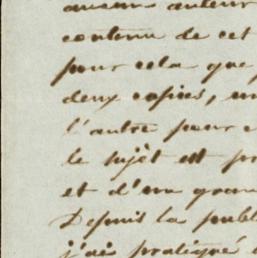 aucun auteur
contenu de cet
pour cela que
deux copies, un
l'autre pour
le sujèt est
et d'un gran
Depuis la publ
j'ai pratiqué